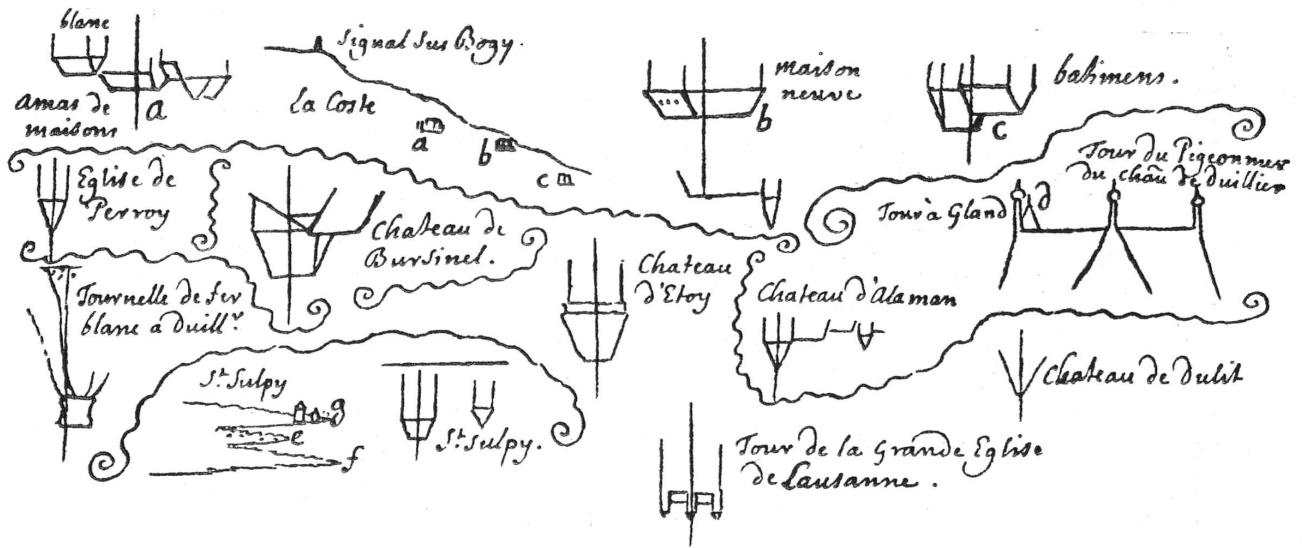 blanc
a
amas de
maisons
Signal sus Bogy.
la Coste
a
b
c
maison
neuve
b
batimens.
c
Eglise de
Perroy
Chateau de
Bursinel.
Tour à Gland
d
Tour du Pigeonnier
du chau de Duillier
Tournelle de fer
blanc a Duillr
Chateau
d'Etoy
Chateau d'Alaman
St Sulpy
g
e
f
St Sulpy.
Chateau de Dulit
Tour de la Grande Eglise
de Lausanne.